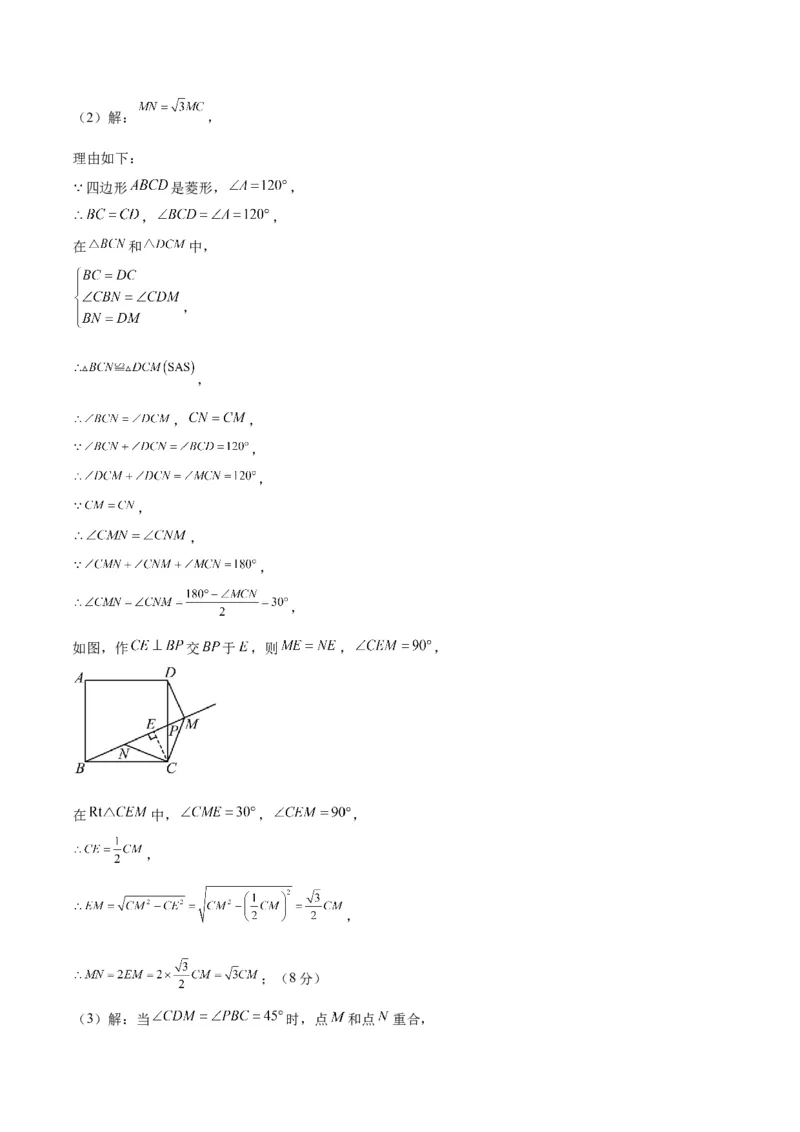 （2）解：MN = √3MC，
理由如下：
∵四边形ABCD是菱形，∠A=120°，
∴BC=CD，∠BCD=∠A=120°，
在△BCN和△DCM中，
{BC=DC
∠CBN=∠CDM
BN=DM，
∴△BCN≌△DCM(SAS)，
∴∠BCN=∠DCM，CN=CM，
∵∠BCN+∠DCN=∠BCD=120°，
∴∠DCM+∠DCN=∠MCN=120°，
∵CM=CN，
∴∠CMN=∠CNM，
∵∠CMN+∠CNM+∠MCN=180°，
∴∠CMN=∠CNM=(180°-∠MCN)/2=30°，
如图，作CE⊥BP交BP于E，则ME=NE，∠CEM=90°，
A D
E P M
N
B C
在Rt△CEM中，∠CME=30°，∠CEM=90°，
∴CE=1/2CM，
∴EM=√(CM²-CE²)=√(CM²-(1/2CM)²)=√3/2CM，
∴MN=2EM=2×√3/2CM=√3CM；（8分）
（3）解：当∠CDM=∠PBC=45°时，点M和点N重合，